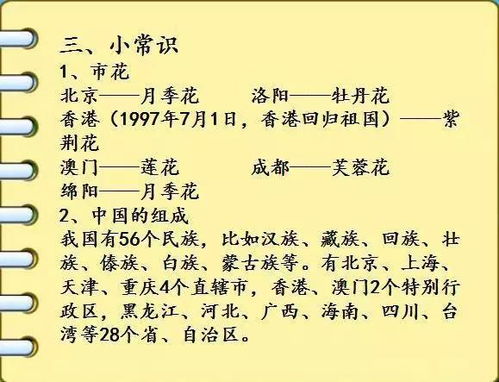 三、小常识
1、市花
北京——月季花 洛阳——牡丹花
香港（1997年7月1日，香港回归祖国）——紫
荆花
澳门——莲花 成都——芙蓉花
绵阳——月季花
2、中国的组成
我国有56个民族，比如汉族、藏族、回族、壮
族、傣族、白族、蒙古族等。有北京、上海、
天津、重庆4个直辖市，香港、澳门2个特别行
政区，黑龙江、河北、广西、海南、四川、台
湾等28个省、自治区。